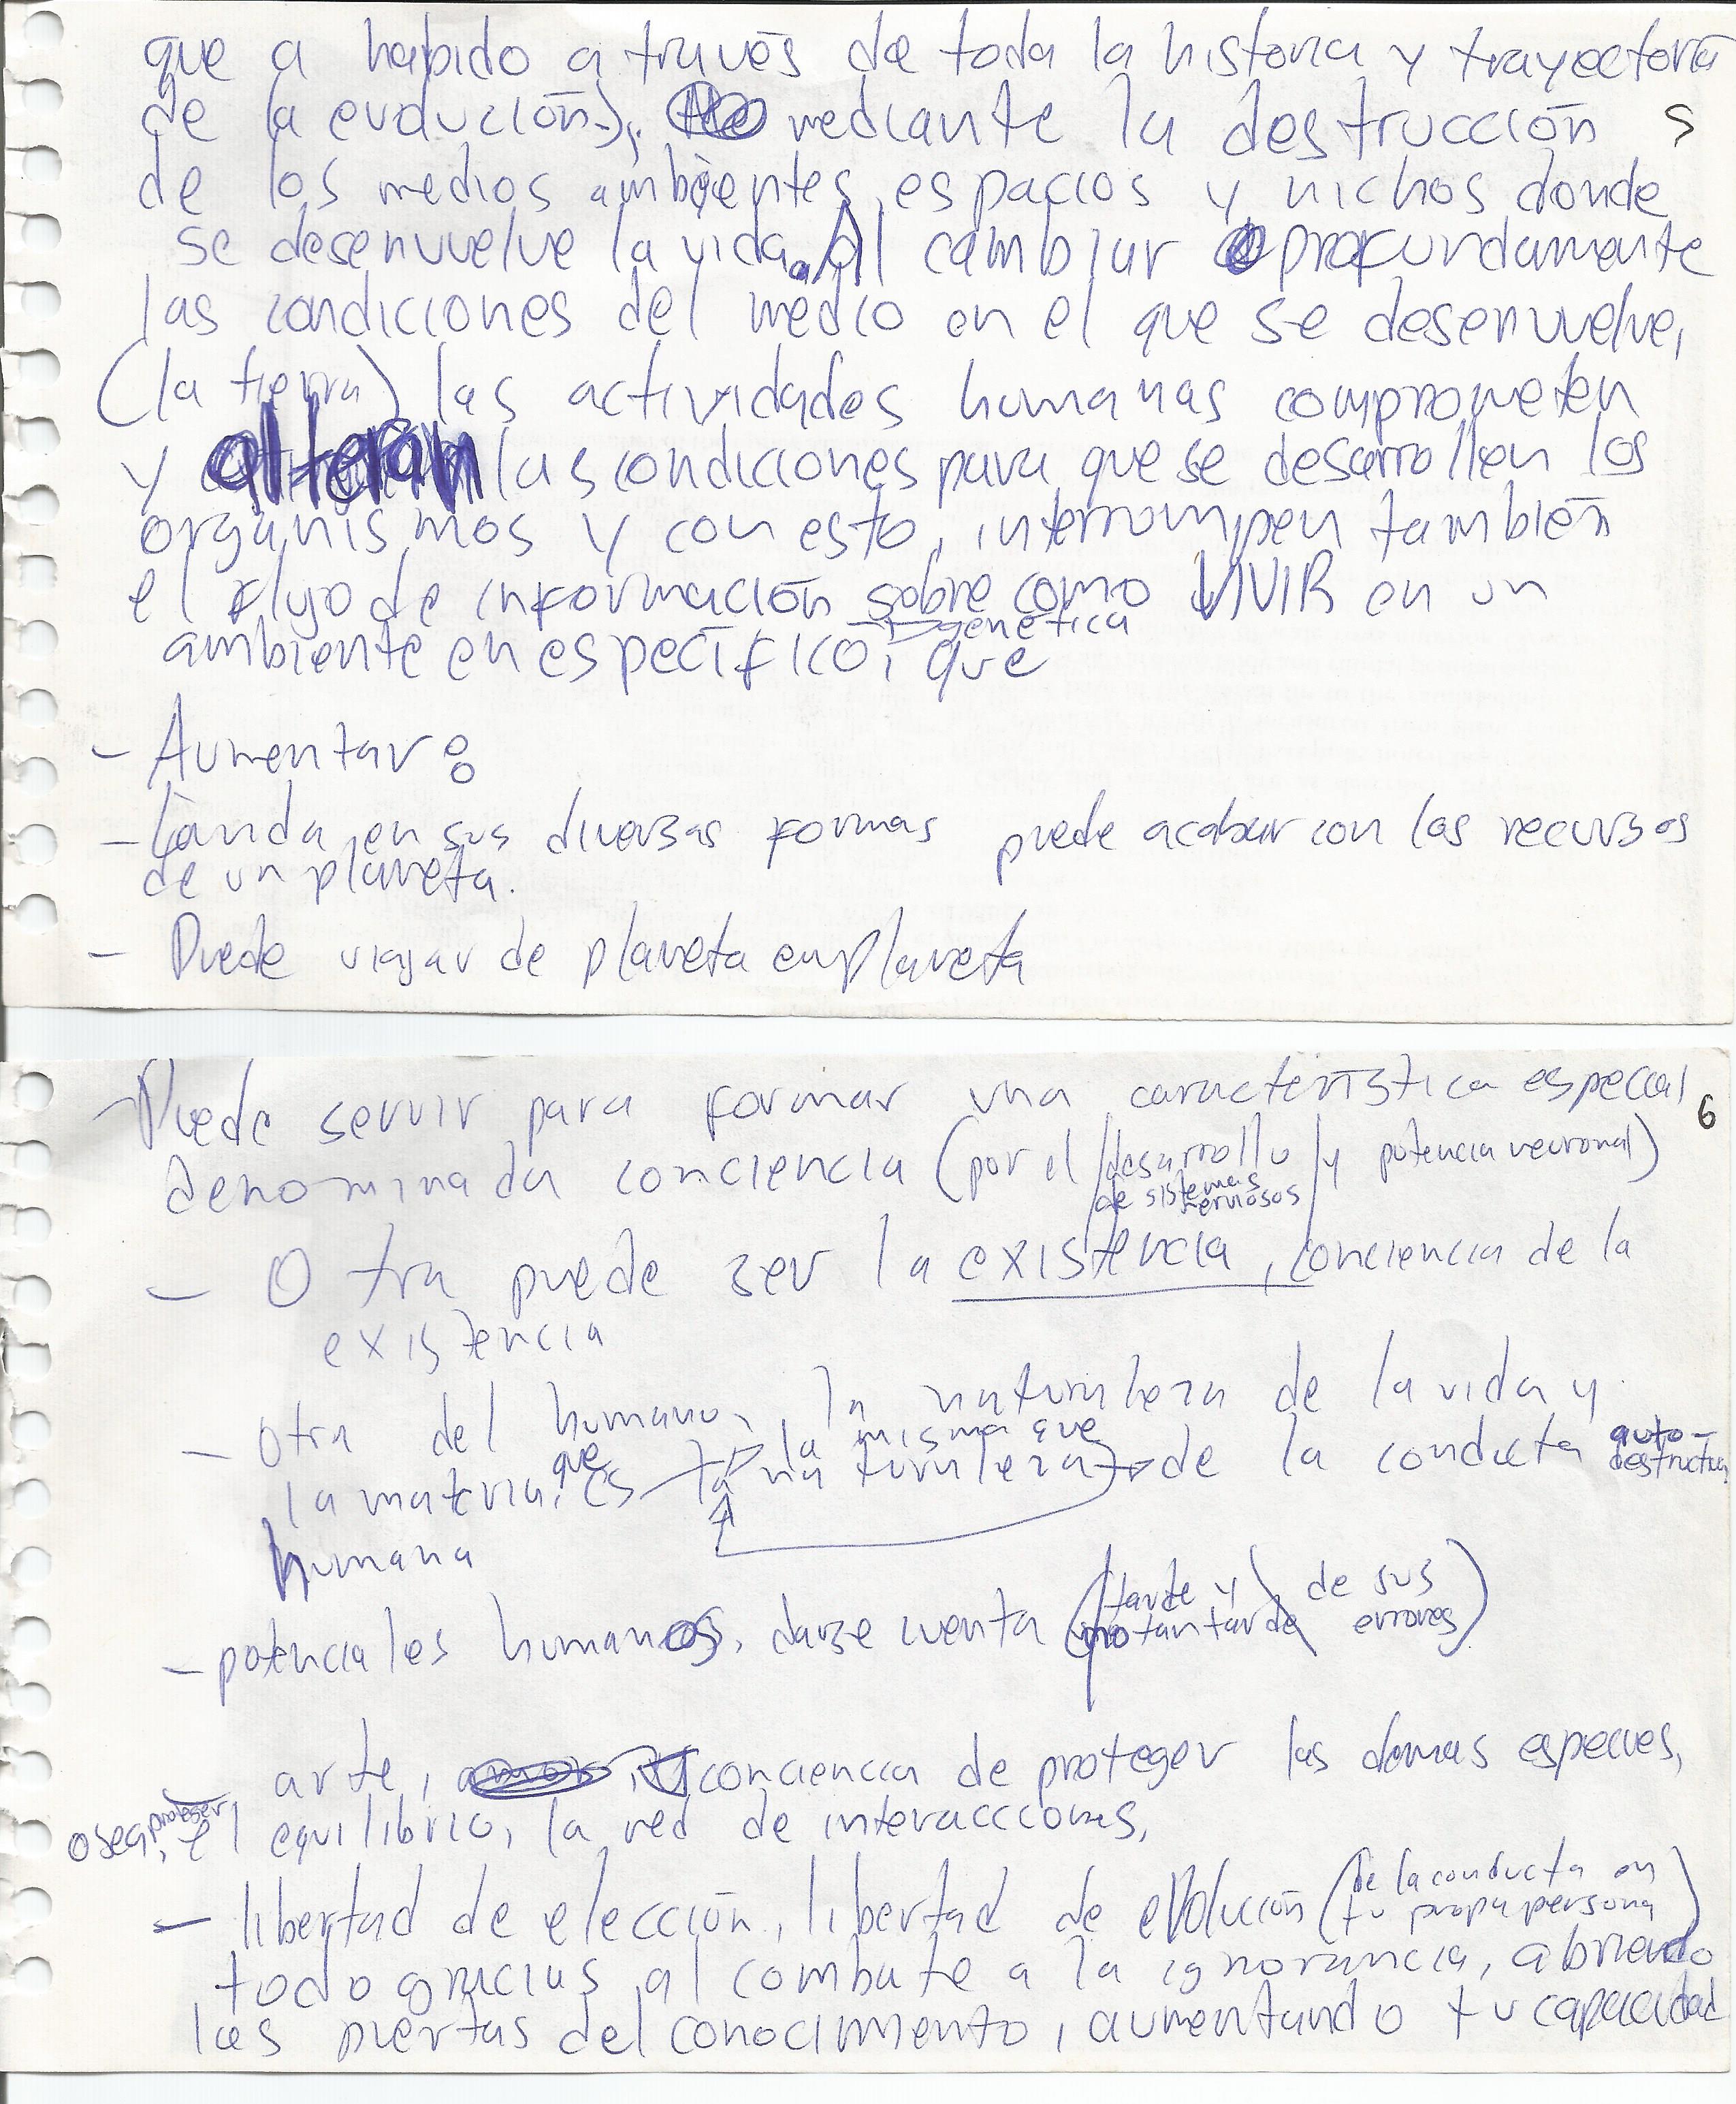 que a habido a través de toda la historia y trayectoria
de la evolución), mediante la destrucción 5
de los medios ambientes, espacios y nichos donde
se desenvuelve la vida. Al cambiar profundamente
las condiciones del medio en el que se desenvuelve,
(la tierra) las actividades humanas comprometen
y alteran las condiciones para que se desarrollen los
organismos y con esto, interrumpen también
el flujo de información sobre como VIVIR en un
genética
ambiente en específico, que
- Aumentar:
- La vida en sus diversas formas puede acabar con los recursos
de un planeta.
- Puede viajar de planeta en planeta
- Puede servir para formar una característica especial 6
denominada conciencia (por el desarrollo y potencia neuronal)
de sistemas nerviosos
- Otra puede ser la existencia, conciencia de la
existencia
- Otra del humano, la naturaleza de la vida y
la materia, que es la misma que la naturaleza de la conducta auto-
destructiva
humana
- potenciales humanos, darse cuenta (tarde y no tan tarde de sus errores)
arte, conciencia de proteger las demas especies,
osea, proteger el equilibrio, la red de interaccciones,
- libertad de elección, libertad de evolución (de la conducta en
tu propia persona)
todo gracias al combate a la ignorancia, abriendo
las puertas del conocimiento, aumentando tu capacidad